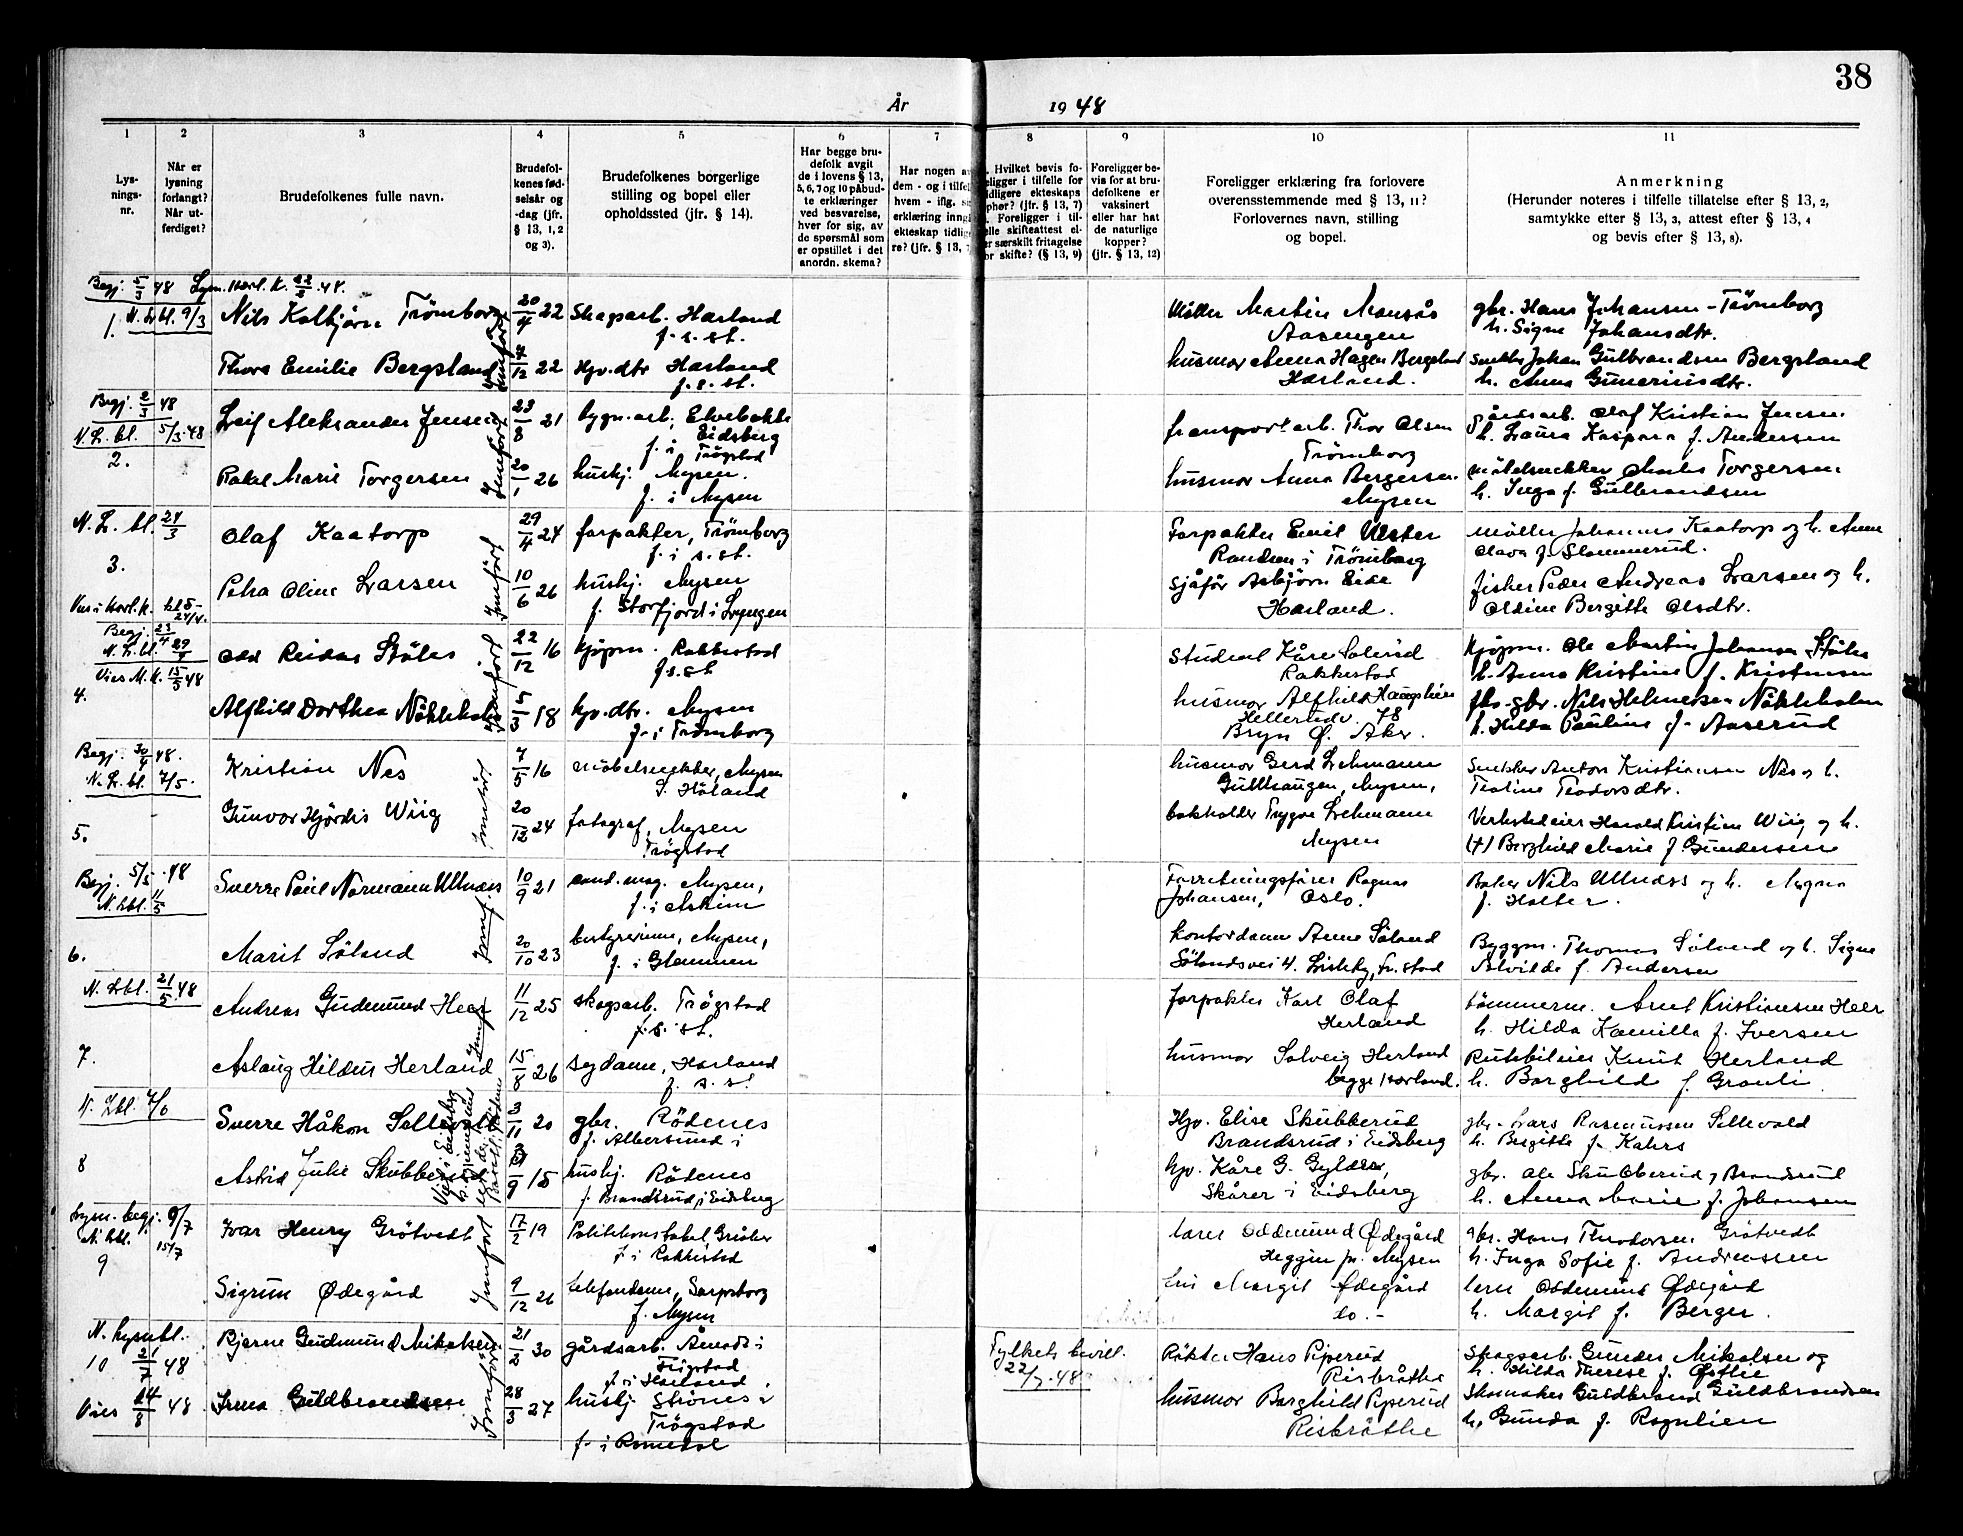 38
År 1948
1
2
3
4
5
6
7
8
9
10
11
Lys-
nings-
nr.
Når er
lysning
forlangt?
Når ut-
ferdiget?
Brudefolkenes fulle navn.
Brudefol-
kenes fød-
selsår og
-dag (jfr.
§ 13, 1, 2
og 3).
Brudefolkenes borgerlige
stilling og bopel eller
opholdssted (jfr. § 14).
Har begge bru-
defolk avgit
de i lovens § 13,
5, 6, 7 og 10 påbud-
te erklæringer
ved besvarelse,
hver for sig, av
de spørsmål som
er opstillet i det
anordn. skema?
Har nogen a
dem - og i tilfel
hvem - iflg.
erklæring inng
ekteskap tidlig
re? (jfr. § 13,
Hvilket bevis fo-
eligger i tilfelle for
idligere ekteskaps
phør? (jfr. § 13, 7)
Foreligger i til-
elle skifteattest el-
er særskilt fritagelse
or skifte? (§ 13, 9)
Foreligger be-
vis for at bru-
defolkene er
vaksinert
eller har hat
de naturlige
kopper?
(jfr. § 13, 12)
Foreligger erklæring fra forlovere
overensstemmende med § 13, 11?
Forlovernes navn, stilling
og bopel.
Anmerkning
(Herunder noteres i tilfelle tillatelse efter § 13, 2,
samtykke efter § 13, 3, attest efter § 13, 4
og bevis efter § 13, 8).
Begj. 5/3 48
1.
N. L. bl. 9/3
Nils Kolbjörn Trömborg
20/4 22
Skogarb. Hærland
f. s. st.
Möller Martin Monsås
Aasengen
gbr. Hans Johansen-Trömborg
h. Signe Johansdtr.
Thora Emilie Bergsland
Jnnfört
7/12 22
Hjv. dtr Hærland
f. s. st.
husmor Anna Hagen Bergsland
Hærland.
Snekker Johan Gulbrandsen Bergsland
h. Anna Guneriusdtr.
Begj. 2/3 48
N. L. bl. 5/3 48
2.
Leif Aleksander Jensen
Jnnfört
23/8 21
bygn. arb.
Eidsberg
f. i Trögstad
transportarb. Thor Olsen
Trömborg
gårdsarb. Olaf Kristian Jensen
h. Laura Kaspara f. Andersen
Rakel Marie Torgersen
20/1 26
hushj. Mysen.
f. i Mysen
husmor Anna Bergersen
Mysen
möbelsnekker Torgersen
h. Inga f. Gulbrandsen
N. L. bl. 24/3
3.
Olaf Kaatorp
Jnnfört
29/4 24
forpakter, Trömborg
f. i s. st.
Forpakter Emil Ulster
Randem i Trömborg
Möller Johannes Kaatorp og h. Anne
Olava f. Slammerud.
Petra Oline Larsen
10/6 26
hushj. Mysen
f. Storfjord i Lyngen
Sjåför Asbjörn Eide
Hærland.
fisker Peder Andreas Larsen og h.
Oldine Bergitte Olsdtr.
Begj. 23/4
N. L. bl. 29/4
Vies M. k. 15/5 48
4.
Odd Reidar Stölen
Jnnfört
22/12 16
kjöpm. Rakkestad
f. s. st
Student Kåre Solerød
Rakkestad
Kjöpm. Ole Martin Johansen Stölen
h. Anna Kristine f. Kristensen
Alfhild Dorthea Nökleholm
5/3 18
hjv. dtr. Mysen
f. i Trömborg
husmor Alfhild Haugstein
78
Bryn Ö. Aker.
fhv. gbr. Nils Helmersen Nökleholm
h. Hilda Pauline f. Aaserud
Begj. 30/4 48.
N. L. bl. 7/5.
5.
Kristian Nes
Jnnfört
7/5 16
Möbelsnekker, Mysen
S. Höland
husmor Gerd Lehmann
Gullhaugen, Mysen,
Snekker Anton Kristiansen Nes og h.
Teoline Teodorsdtr.
Gunvor Hjördis Wiig
20/12 24
fotograf, Mysen
Trögstad
bokholder Trygve Lehmann
Mysen
Verkstedeier Harald Kristian Wiig og h.
(+) Borghild Marie f. Gundersen
Begj. 5/5 48
N. L bl. 11/5
6.
Sverre Paul Normann Ullnæss
Jnnf.
10/9 21
cand. mag. Mysen,
f. i Askim
Forretningsförer Ragnar
Johansen, Oslo.
Baker Nils Ullnæss og h. Magna
f. Holter.
Marit Söland
20/10 23
bestyrerinne, Mysen,
f. i Glemmen
kontordame Anne Söland
Sölandsvei 4. Lisleby, Fr. stad
Byggm. Thomas Söland og h. Signe
Alvilde f. Andersen
N. L bl. 21/5 48
7.
Andreas Gudmund Heer
Jnnf.
11/12 25
skogsarb. Trögstad
f. s. st.
forpakter Karl Olaf
Herland
tömmerm. Arnt Kristiansen Heer
h. Hilda Kamilla f. Iversen
Aslaug Hildur Herland
15/8 26
sydame, Hærland
f. s. st
husmor Solveig Herland
begge Hærland.
Rutebileier Knut Herland
h. Borghild f. Grauli
N. L bl. 7/6
8
Sverre Håkon Sellevold
3/11 20
gbr. Rödenes
f. Albersund i
Hjv. Elise Skubberud
Brandsrud i Eidsberg
gbr. Lars Rasmussen Sellevold
h. Bergitte f. Kahrs
Astrid Julie Skubberud
/9 15
hushj. Rödenes
f. Brandsrud, i Eidsberg
hjv. Kåre G. Gylder,
Skårer i Eidsberg
gbr. Ole Skubberud, Brandsrud
h. Anna Marie f. Johansen
Lysn. begj. 9/7
N. L bl. 15/7
9
Ivar Henry Grötvedt
Jnnfört
17/2 19
Politikonstabel
f. i Rakkestad
lærer Oddmund Ödegård
Heggin pr. Mysen
gbr. Hans Theodorsen Grötvedt
h. Inga Sofie f. Andreassen
Sigrun Ødegård
9/12 26
telefondame, Sarpsborg
f. Mysen
fru Margit Ödegård
do. -
lærer Oddmund Ödegård
h. Margit f. Berger.
N. Lysn bl.
10 21/7 48
Vies 14/8 48
Bjarne Gudmund Mikalsen
Jnnfört
21/2 30
gårdsarb. i
Trögstad
f. i Hærland
Fylkets bevill.
22/7 48
Rökter Hans Piperud
Risbråthe
Skogsarb. Gunder Mikalsen og
h. Hilda Therese f. Østlie
Irma Guldbrandsen
28/3 27
hushj. i
Trögstad
f. i Romedal
husmor Borghild Piperud
Risbråthe
Skomaker Guldbrand Guldbrandsen
h. Gunda f. Rognlien